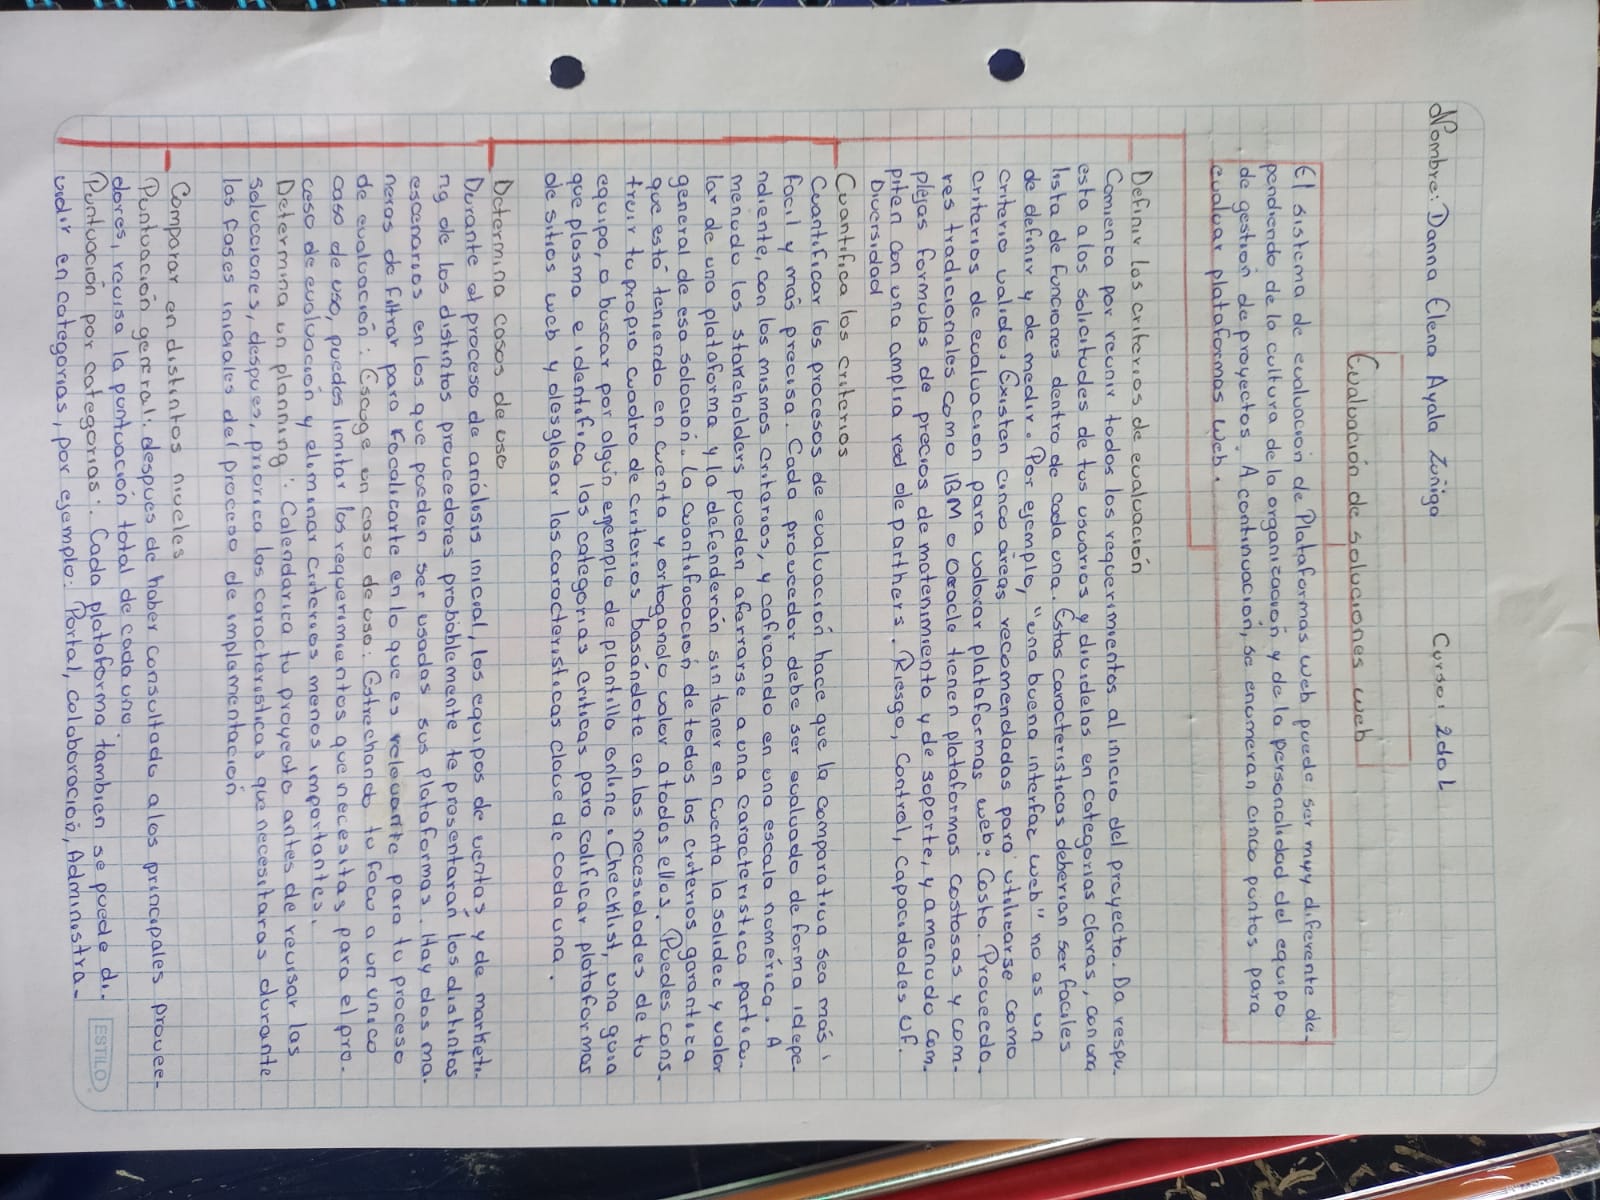 Nombre: Danna Elena Ayala Zuñiga Curso: 2do L
Evaluación de soluciones web
El sistema de evaluación de Plataformas web puede ser muy diferente de-
pendiendo de la cultura de la organización y de la personalidad del equipo
de gestión de proyectos. A continuación, se enumeran cinco puntos para
evaluar plataformas web.
Definir los criterios de evaluación
Comienza por reunir todos los requerimientos al inicio del proyecto. Da respu-
esta a las solicitudes de tus usuarios y dividelas en categorías claras, con una
lista de funciones dentro de cada una. Estas características deberían ser faciles
de definir y de medir. Por ejemplo, "una buena interfaz web" no es un
criterio valido. Existen cinco áreas recomendadas para utilizarse como
criterios de evaluación para valorar plataformas web: Costo. Proveedo-
res tradicionales como IBM o Oracle tienen plataformas costosas y com-
plejas formulas de precios de matenimento y de soporte, y a menudo com-
piten con una amplia red de parthers. Riesgo, Control, Capacidades UF.
Diversidad
Cuantifica los criterios
Cuantificar los procesos de evaluación hace que la comparativa sea más
facil y más precisa. Cada proveedor debe ser evaluado de forma idepe-
ndiente, con los mismos criterios, y caficando en una escala númérica. A
menudo los stakeholders pueden aferrarse a una caracteristica particu-
lar de una plataforma y la defenderán sin tener en cuenta la solidez y valor
general de esa solución. La cuantifocación de todos los criterios garantiza
que está teniendo en cuenta y ortogando valor a todos ellos. Puedes cons-
truir tu propio cuadro de criterios basándote en las necesidades de tu
equipo, o buscar por algún ejemplo de plantilla online. Checklist, una guia
que plasma e identifica las categorias criticas para calificar plataformas
de sitios web y desglosar las caracteristicas clave de cada una.
Determina casos de uso
Durante el proceso de análisis inicial, los equipos de ventas y de marketi-
ng de los distintos proveedores probablemente te presentaran los distintos
escenarios en los que pueden ser usadas sus plataformas. Hay dos ma-
neras de filtrar para focalizarte en lo que es relevante para tu proceso
de evaluación: Escoge un caso de uso: Estrechando tu foco a un unico
caso de uso, puedes limitar los requerimientos que necesitas para el pro-
ceso de evaluación y eliminar criterios menos importantes.
Determina un planning: Calendariza tu proyecto antes de revisar las
soluciones, despues, prioriza las características que necesitaras durante
las fases iniciales del proceso de implementación
Comparar en distintos niveles
Puntuación general: después de haber consultado a los principales provee-
dores, revisa la puntuación total de cada uno
Puntuación por categorías: Cada plataforma tambien se puede di-
vidir en categorias, por ejemplo: Portal, colaboración, Administra-
ESTILO